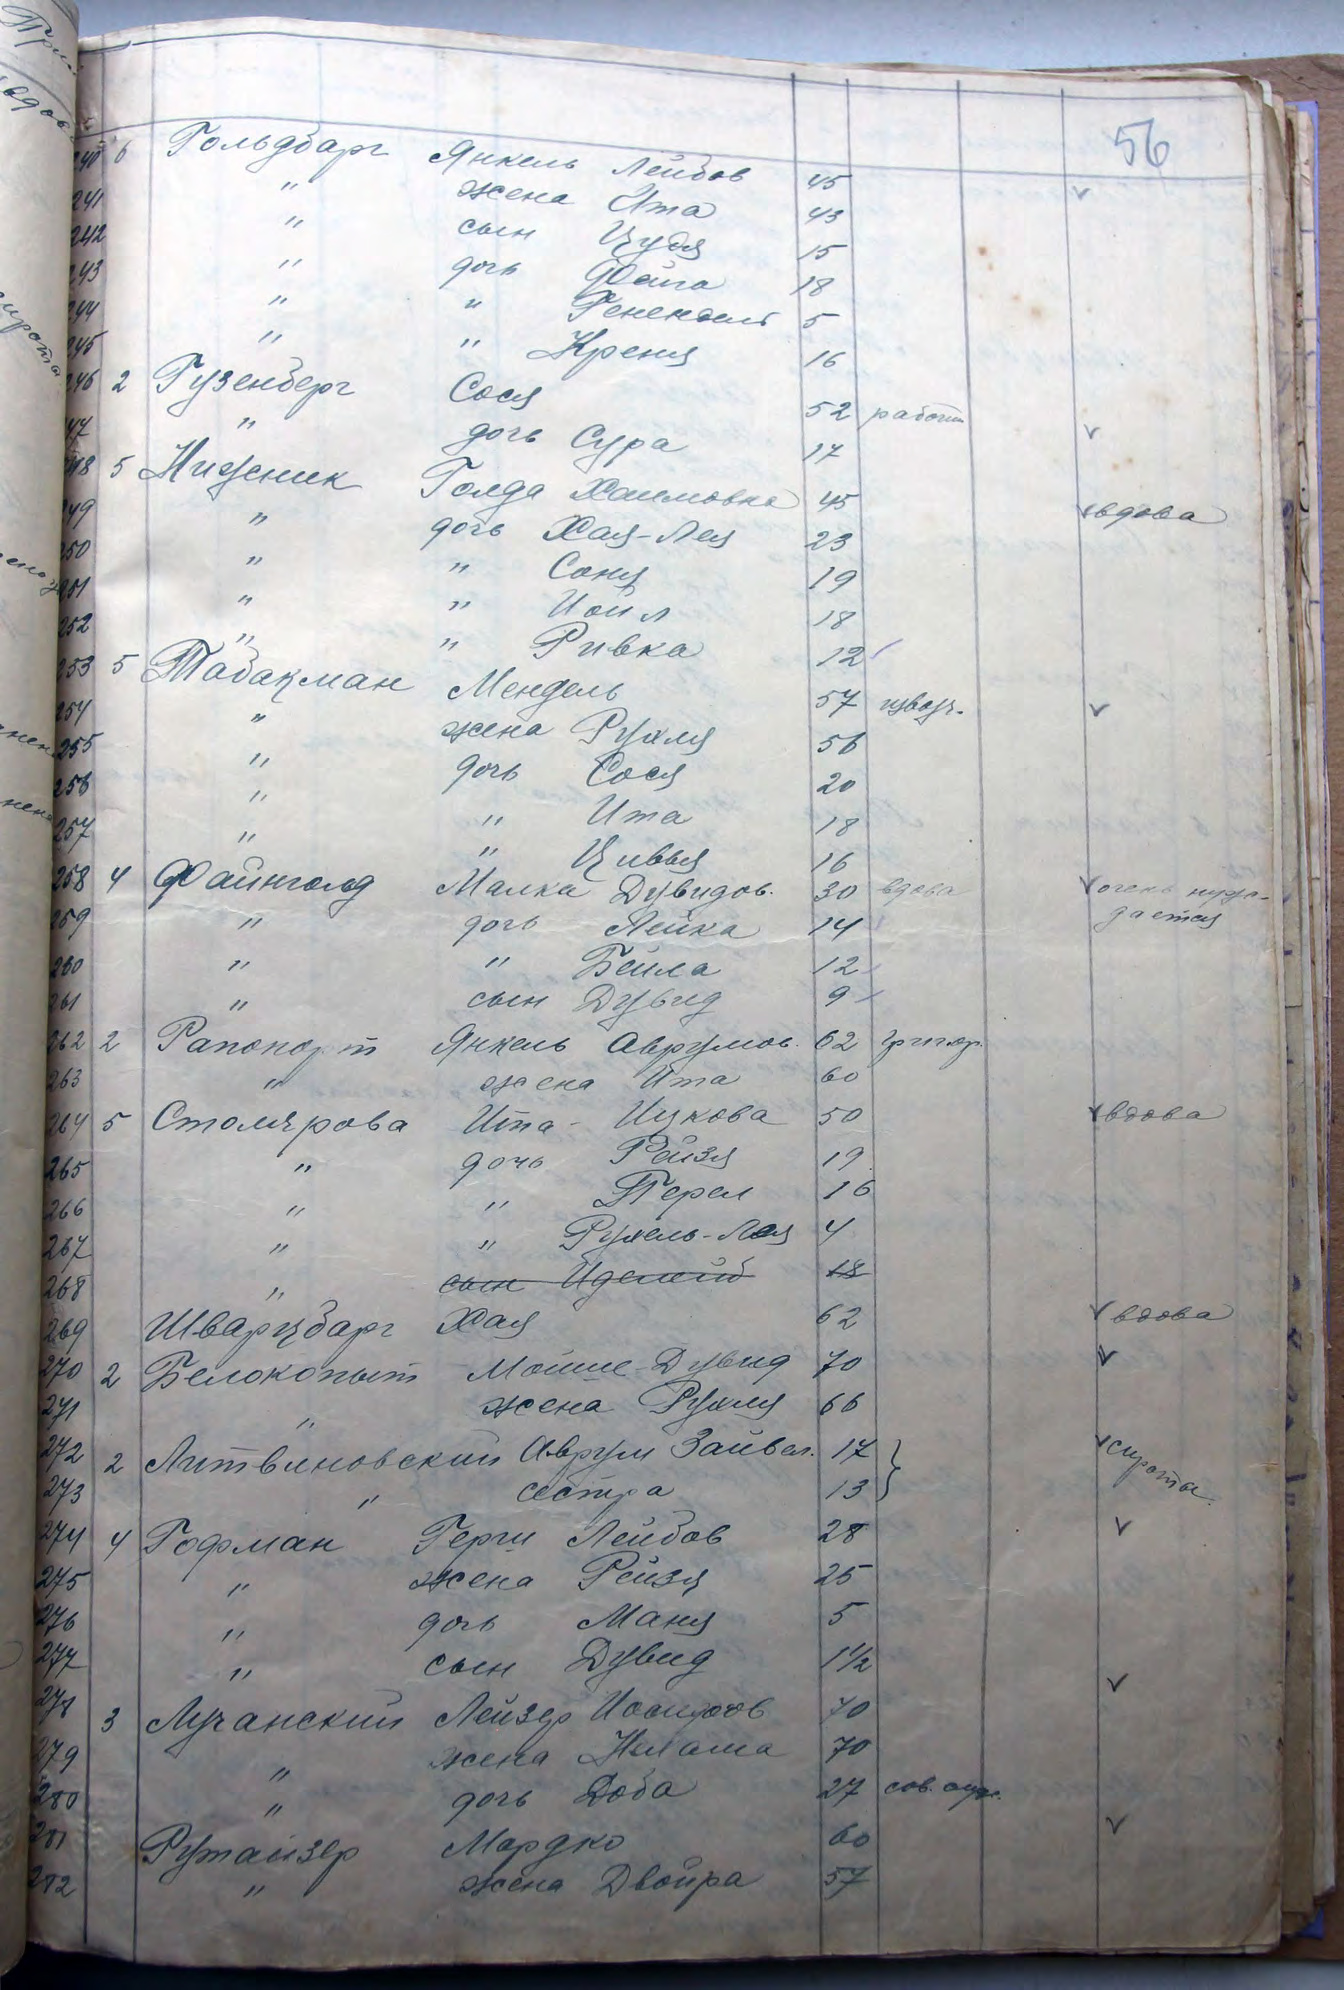 56
240 6 Гольдбарг Янкель Лейбов 45
241 " жена Ита 43
242 " сын Цудя 15
243 " дочь Фейга 18
244 " " 5
245 " " Креня 16
246 2 Гузенберг Сося 52 работн
247 " дочь Сура 17
248 5 Нижник Голда Хаимовна 45 вдова
249 " дочь Хая-Лея 23
250 " " Соня 19
251 " " Иойл 18
252 " " Ривка 12
253 5 Табакман Мендель 57 извозч.
254 " жена Рухля 56
255 " дочь Сося 20
256 " " Ита 18
257 " " Цивья 16
258 4 Файнгольд Малка Дувидов. 30 вдова очень нуж-
дается
259 " дочь Лейка 14
260 " " Бейла 12
261 " сын Дувид 9
262 2 Рапопорт Янкель Аврумов. 62
263 " жена Ита 60
264 5 Столярова Ита - Ицкова 50 вдова
265 " дочь Рейзя 19
266 " " Перел 16
267 " " Рухель-Лея 4
268 " сын 18
269 Шварцбарг Хая 62 вдова
270 2 Белокопыт Мошие-Дувид 70
271 " жена Рухля 66
272 2 Литвиновский Аврум Зайвел. 17 сироты
273 " сестра 13
274 4 Гофман Герш Лейбов 28
275 " жена Рейзя 25
276 " дочь Маня 5
277 " сын Дувид 1½
278 3 Лучанский Лейзер Иосифов 70
279 " жена 70
280 " дочь Доба 27 сов. служ.
281 Рутайзер Мордко 60
282 " жена Двойра 57